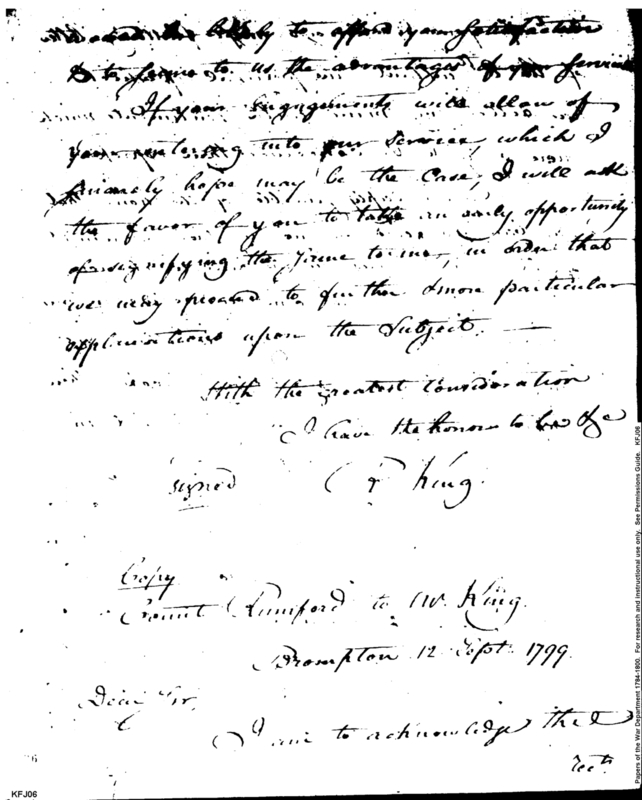 likely to afford you Satisfaction
& to secure to us the advantages of your Services
If your engagements will allow of
your entering into our Service, which I
sincerely hope may be the Case, I will ask
the favor of you to take an early opportunity
of signifying the same to me, in order that
we may proceed to further & more particular
explanations upon the Subject. —
With the greatest Consideration
I have the honour to be &c
signed R King.
Copy
Count Rumford to Mr. King.
Brompton 12 Sept. 1799.
Dear Sir,
I am to acknowledge the
rect
KFJ06
Papers of the War Department 1784-1800. For research and instructional use only. See Permissions Guide. KFJ06